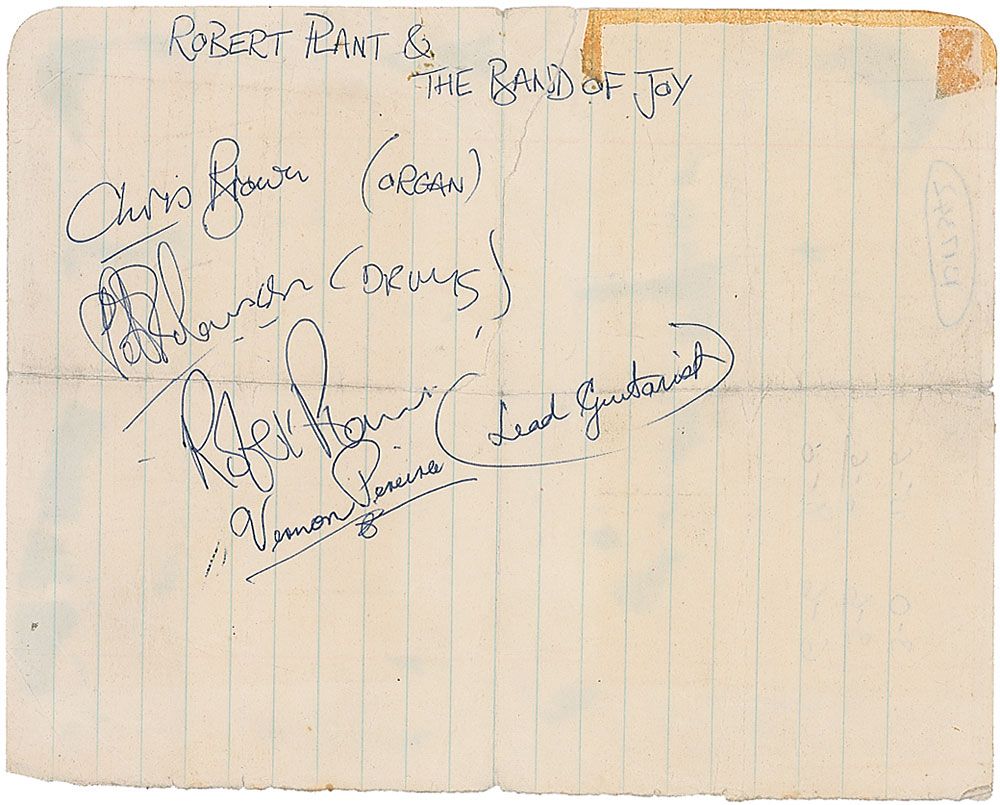 ROBERT PLANT &
THE BAND OF JOY
Chris Brown (ORGAN)
(DRUMS)
Vernon Pereira (Lead Guitarist)